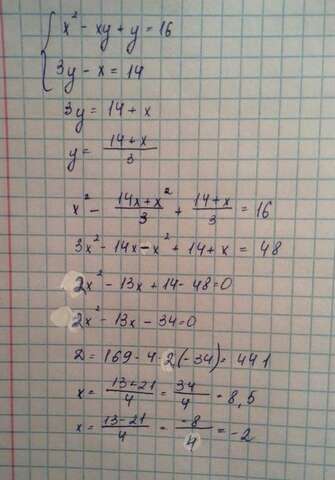 { x² - xy + y = 16
3y - x = 14
3y = 14 + x
y = (14 + x)/3
x² - (14x + x²)/3 + (14 + x)/3 = 16
3x² - 14x - x² + 14 + x = 48
2x² - 13x + 14 - 48 = 0
2x² - 13x - 34 = 0
D = 169 - 4 · 2(-34) = 441
x = (13 + 21)/4 = 34/4 = 8,5
x = (13 - 21)/4 = -8/4 = -2